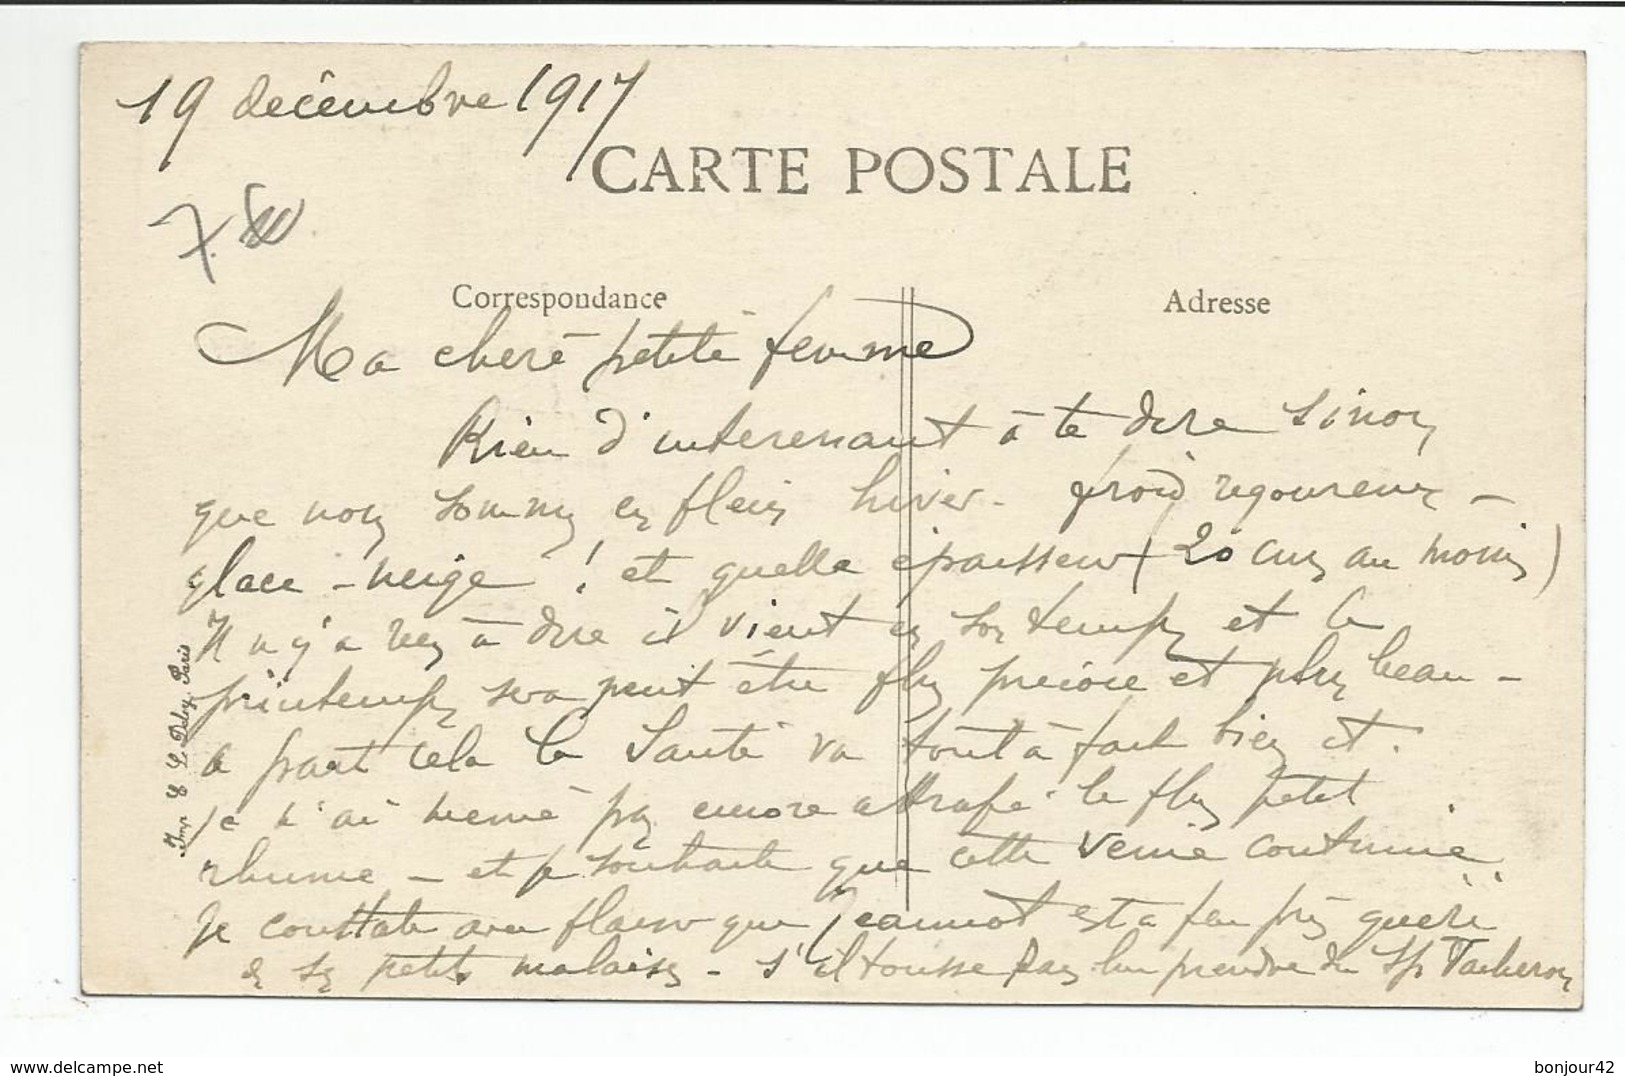 19 décembre 1917
CARTE POSTALE
Correspondance
Adresse
Ma chère petite femme
Rien d'interessant à te dire sinon
que nous sommes en plein hiver. froid rigoureux -
glace - neige ! et quelle épaisseur (20 cms au moins)
Il n'y a rien à dire il vient en son temps et le
printemps sera peut être plus précoce et plus beau -
a part cela la Santé va tout à fait bien et
je n'ai même pas encore attrapé le plus petit
rhume - et je souhaite que cette veine continue
Je constate avec plaisir que Jeannot est a peu près guéri
de ses petits malaises - s'il tousse fais lui prendre du Sp Vacheron
Imp. E. Le Deley, Paris
delcampe.net
bonjour42